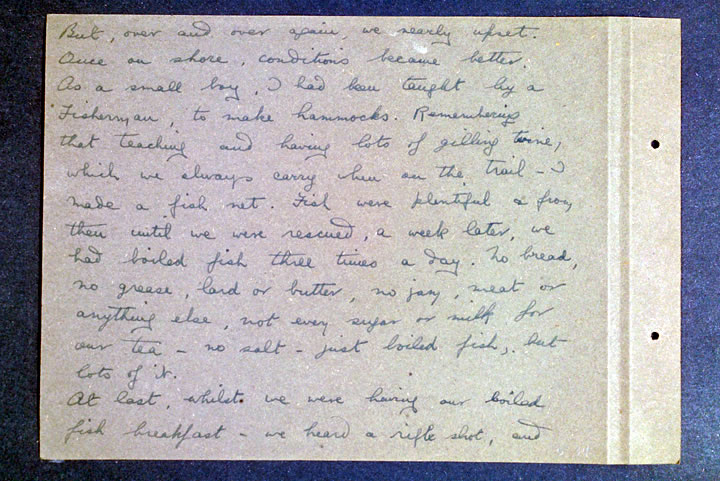 But, over and over again, we nearly upset.
Once on shore, conditions became better.
As a small boy, I had been taught by a
Fisherman, to make hammocks. Remembering
that teaching and having lots of gilling twine,
which we always carry when on the trail - I
made a fish net. Fish were plentiful & from
then until we were rescued, a week later, we
had boiled fish three times a day. No bread,
no grease, lard or butter, no jam, meat or
anything else, not even sugar or milk for
our tea - no salt - just boiled fish, but
lots of it.
At last, whilst we were having our boiled
fish breakfast - we heard a rifle shot, and